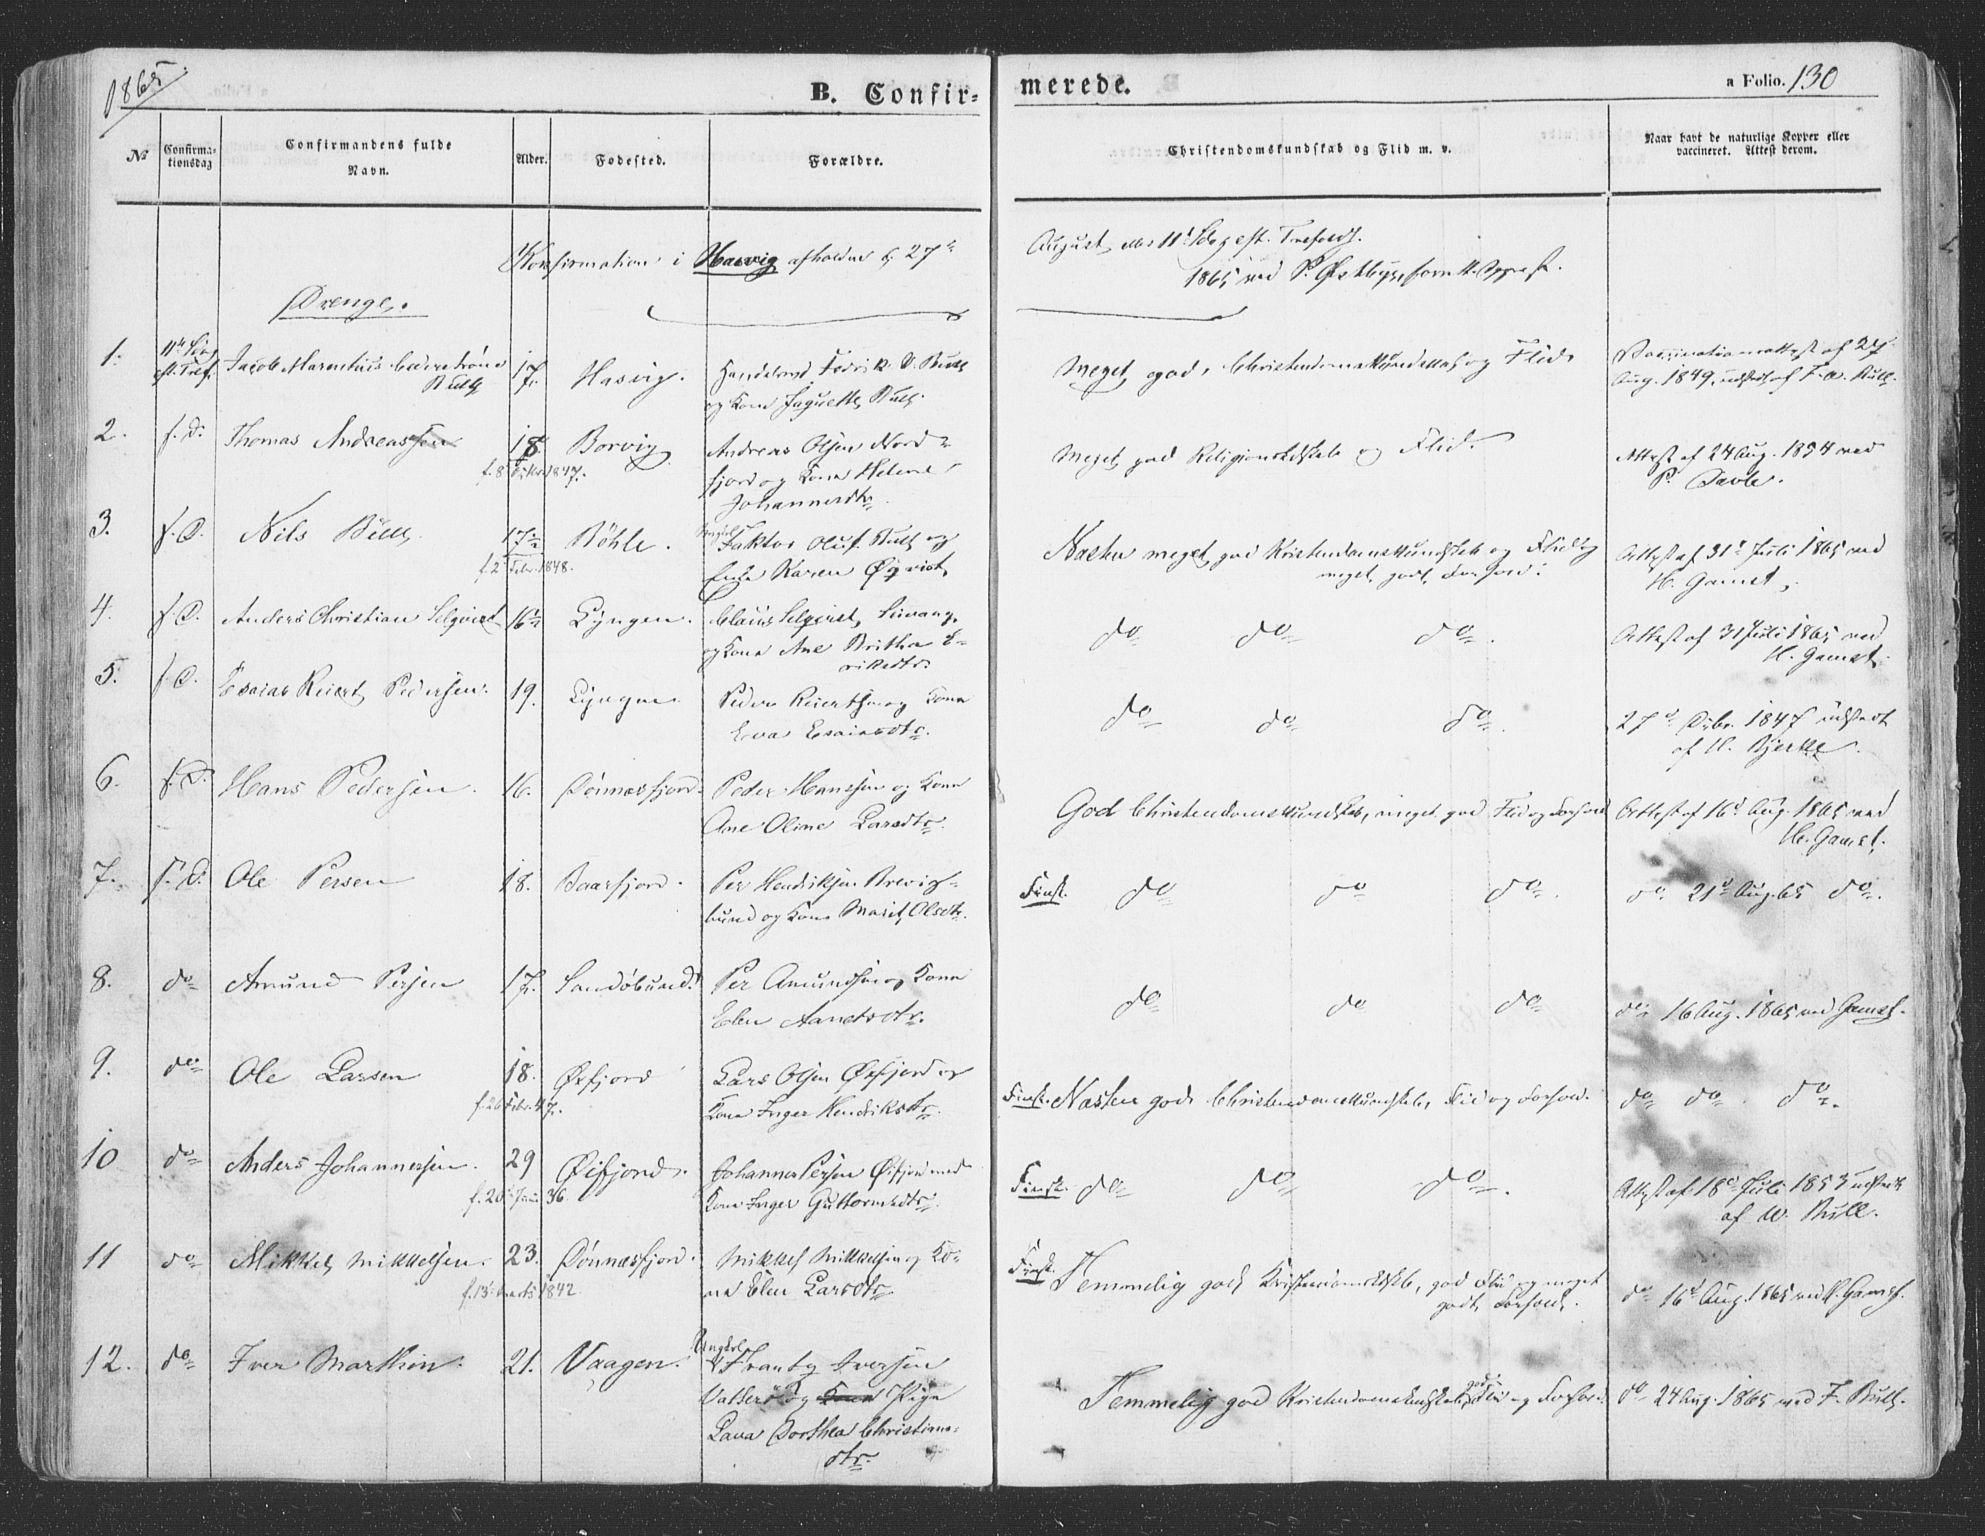 1865
B. Confir-
merede.
a Folio. 130
No
Confirma-
tionsdag
Confirmandens fulde
Navn.
Alder.
Fødested.
Forældre.
Christendomskundskab og Flid m. v.
Naar havt de naturlige Kopper eller
vaccineret. Attest derom.
Konfirmation i Hasvig afholden d. 27de
August, 11te Sdag eft. Trefold.
1865 ved P. Østbye, form
Drenge.
1. 11te
eft. Tref. Jacob Marentius
Bull 17 Hasvig. Fredrik D. Bull
og Kone Bull.
Meget god Christendomskundskab og Flid.
Vaccinationsattest af 27
Aug. 1849, udstedt af F. W. Bull.
2. f. D. Thomas Andreassen 18 Borvig Andreas Olsen Nord-
f. 8 1847. fjord og Kone Helene
Johannesdtr.
Meget god Religionskdskab og Flid.
Attest af 24 Aug. 1854 ved
P. Savle.
3. f. D. Nils Bull 17½ Bøhle. Faktor Oluf Bull og
f. 2 Febr. 1848. Enke Karen Øqvist.
Næsten meget god Kristendomskundskab og Flid og
meget godt Forhold.
Attest af 31te Juli 1865 ved
H. Gamst.
4. f. D. Anders Christian Selqvist 16½ Lyngen. Claus Selqvist,
og Kone Ane Britha E-
riksdtr.
do do do.
Attest af 31 Juli 1865 ved
H. Gamst.
5. f. D. Esaias Reiert Pedersen. 19. Lyngen Peder Reiertsen og Kone
Eva Esaiasdtr.
do do do.
27de 1847 udstedt
af H. Bjerke.
6. f. D. Hans Pedersen. 16. Dønnesfjord. Peder Hanssen og Kone
Ane Oline Larsdtr.
God Christendomskundskab, meget god Flid og Forhold
Attest af 16de Aug. 1865 ved
H. Gamst.
7. f. D. Ole Persen 18. Baarfjord. Per Hendriksen Brevig-
bund og Kone Marit Olsdtr.
Finsk. do do do.
do 21de Aug. 65 do.
8. do Amund Persen 17. Sandøbund. Per Amundsen og Kone
Elen Aanetsdtr.
do do do
do 16 Aug. 1865 ved Gamst.
9. do Ole Larsen 18. Øxfjord Lars Olsen Øxfjord og
f. 26 Febr. 47. Kone Inger Hendriksdtr.
Finsk. Næsten god Christendomskundskab, Flid og Forhold.
do do do.
10 do Anders Johannessen. 29 Øxfjord. Johannes Persen Øxfjord med
f. 20 36 Kone Inger Guttormsdtr.
Finsk. do do do.
Attest af 18de Juli 1853 udstedt
af W. Bull.
11 do Mikkel Mikkelsen. 23. Dønnesfjord. Mikkel Mikkelsen og Ko-
f. 13 Marts 1842. ne Elen Larsdtr
Finsk. Temmelig god Kristendomskdskb, god Flid og meget
godt Forhold.
do 16de Aug. 1865 ved H. Gamst.
12. do Iver Marthin. 21. Vaagen. Ungkl.
Frantz Iversen
og Kone Pige
Lava Dorthea Christians-
dtr.
Temmelig god Kristendomskundskab, god Flid og Forhold.
do 24 Aug. 1865 ved F. Bull.